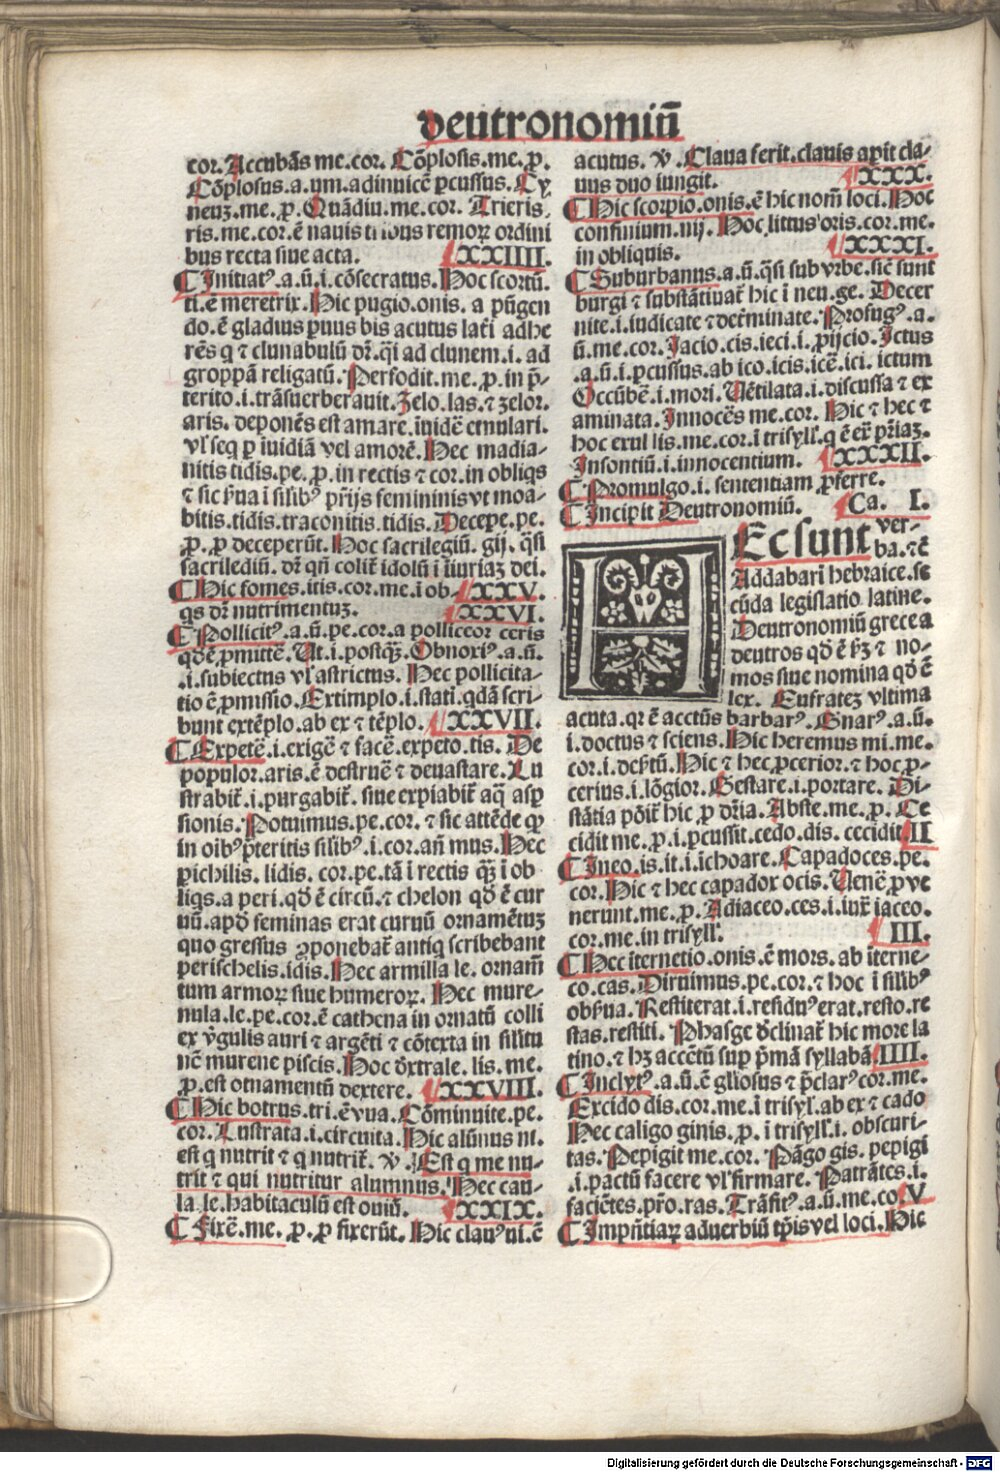 Deutronomiũ
cor. Accubãs me.cor. Cõplosis.me.ꝓ.
Cõplosus.a.um.adinuicẽ ꝑcussus. Cy
neuꝫ.me.ꝓ. Quãdiu.me.cor. Trieris,
ris.me.cor.ẽ nauis triũ remoꝝ ordini
bus recta siue acta. XXIIII.
¶ Initiatꝰ.a.ũ.i.cõsecratus. Hoc scortũ.
ti.ẽ meretrix. Hic pugio.onis. a pũgen
do.ẽ gladius ꝑuus bis acutus lateri adhe
rẽs q ⁊ clunabulũ dr̃.q̃i ad clunem.i. ad
groppã religatũ. Perfodit.me.ꝓ.in p̃-
terito.i.trãsuerberauit. Zelo.las.⁊ zelor.
aris. deponẽs est amare. inuidẽ emulari.
vl̕ seq ꝑ inuidiã vel amorẽ. Hec madia-
nitis tidis.pe.ꝓ.in rectis ⁊ cor.in obliqs
⁊ sic ẜua ĩ silibꝰ pr̃ijs femininis vt moa-
bitis.tidis.traconitis.tidis. Decepe.pe.
ꝓ. ꝓ deceperũt. Hoc sacrilegiũ. gij. q̃si
sacrilediũ. dr̃ qñ colit̃ idolũ ĩ iniuriaꝫ dei.
¶ Hic fomes.itis.cor.me.ĩ ob- XXV.
qs dr̃ nutrimentuꝫ. XXVI.
¶ Pollicitꝰ.a.ũ.pe.cor.a polliceor ceris
qđ ẽ ꝓmittẽ. Ut.i.postq̃ꝫ. Obnoxiꝰ.a.ũ.
.i.subiectus vl̕ astrictus. Hec pollicita-
tio ẽ ꝓmissio. Extimplo.i.stati.qdã scri-
bunt extẽplo.ab ex ⁊ tẽplo. XXVII.
¶ Expetẽ.i.exigẽ ⁊ facẽ.expeto.tis. De
populor.aris.ẽ destruẽ ⁊ deuastare. Lu
strabit̃.i.purgabit̃. siue expiabit̃ aq̃ asꝑ
sionis. Potuimus.pe.cor. ⁊ sic attẽde ꝙ
in oibꝰ p̃teritis silibꝰ.i.cor.añ mus. Hec
ꝑichilis. lidis. cor.pe.tã ĩ rectis q̃ꝫ ĩ ob
liqs.a peri.qđ ẽ circũ.⁊ chelon qđ ẽ cur
uũ. apđ feminas erat curuũ ornamẽtuꝫ
quo gressus ꝯponebat̃ antiq scribebant
perischelis.idis. Hec armilla le. ornam̃
tum armoꝝ siue humeroꝝ. Hec mure-
nula.le.pe.cor.ẽ cathena in ornatũ colli
ex ṽgulis auri ⁊ argẽti ⁊ cõtexta in silitu
nẽ murene piscis. Hoc d̃xtrale. lis. me.
ꝓ.est ornamentũ dextere. XXVIII.
¶ Hic botrus.tri.ẽ vua. Cõminuite.pe.
cor. Lustrata.i.circuita. Hic alũnus ni.
est q nutrit ⁊ q nutrit̃. v̕. Est q me nu-
trit ⁊ qui nutritur alumnus. Hec cau-
la.le.habitaculũ est ouiũ. XXIX.
¶ Fixẽ.me. ꝓ. ꝓ fixerũt. Hic clauꝰ ni.ẽ
acutus. v̕. Claua ferit.clauis aꝑit cla-
uus duo iungit. XXX.
¶ Hic scorpio.onis.ẽ hic nom̃ loci. Hoc
confinium.nij. Hoc littus oris.cor.me.
in obliquis. XXXI.
¶ Suburbanus.a.ũ.q̃si sub vrbe.sic̃ sunt
burgi ⁊ substãtiuat̃ hic ĩ neu.ge. Decer
nite.i.iudicate ⁊ det̃minate. Profugꝰ.a.
ũ.me.cor. Iacio.cis.ieci.i.ꝓijcio. Ictus
.a.ũ.i.ꝑcussus.ab ico.icis.icẽ.ici. ictum
Occũbẽ.i.mori. Uẽtilata.i.discussa ⁊ ex
aminata. Innocẽs me.cor. Hic ⁊ hec ⁊
hoc exul lis.me.cor.ĩ trisyll̕.q ẽ ext̃ pr̃iaꝫ.
Insontiũ.i.innocentium. XXXII.
¶ Promulgo.i. sententiam ꝓferre.
¶ Incipit Deutronomiũ. Ca. I.
HEc sunt ver-
ba.⁊ẽ
Addabari hebraice.se
cũda legislatio latine.
Deutronomiũ grece a
deutros qđ ẽ ẜꝫ ⁊ no-
mos siue nomina qđ ẽ
lex. Eufrateꝫ vltima
acuta.qꝛ ẽ accẽtũs barbarꝰ. Gnarꝰ.a.ũ.
i.doctus ⁊ sciens. Hic heremus mi.me.
cor.i.deẜtũ. Hic ⁊ hec ꝓcerior.⁊ hoc ꝓ-
cerius.i.lõgior. Gestare.i.portare. Di-
stãtia põit̃ hic ꝓ dr̃ia. Abste.me.ꝓ. Ce
cidit me.ꝓ.i.ꝑcussit.cedo.dis. cecidit. II
¶ Ineo.is.it.i.ichoare. Capadoces.pe.
cor. Hic ⁊ hec capadox ocis. Uenẽ ꝓ ve
nerunt.me.ꝓ. Adiaceo.ces.i.iuxt̃ iaceo.
cor.me.in trisyll̕. III.
¶ Hec iternetio.onis.ẽ mors. ab iterne-
co.cas. Diruimus.pe.cor.⁊ hoc ĩ silibꝰ
obẜua. Restiterat.i.residuꝰ erat.resto.re
stas.restiti. Phasge d̃clinat̃ hic more la
tino.⁊ hꝫ accẽtũ suꝑ p̃mã syllabã. IIII.
¶ Inclytꝰ.a.ũ.ẽ gliosus ⁊ p̃clarꝰ cor.me.
Excido dis.cor.me.ĩ trisyl̕.ab ex ⁊ cado
Hec caligo ginis.ꝓ. ĩ trisyll̕.i. obscuri-
tas. Pepigit me.cor. Pãgo gis. pepigi
.i.pactũ facere vl̕ firmare. Patrãtes.i.
faciẽtes.pr̃o.ras. Trãsitꝰ.a.ũ.me.co. V.
¶ Impñtiaꝝ aduerbiũ tꝑis vel loci. Hic
Digitalisierung gefördert durch die Deutsche Forschungsgemeinschaft - DFG